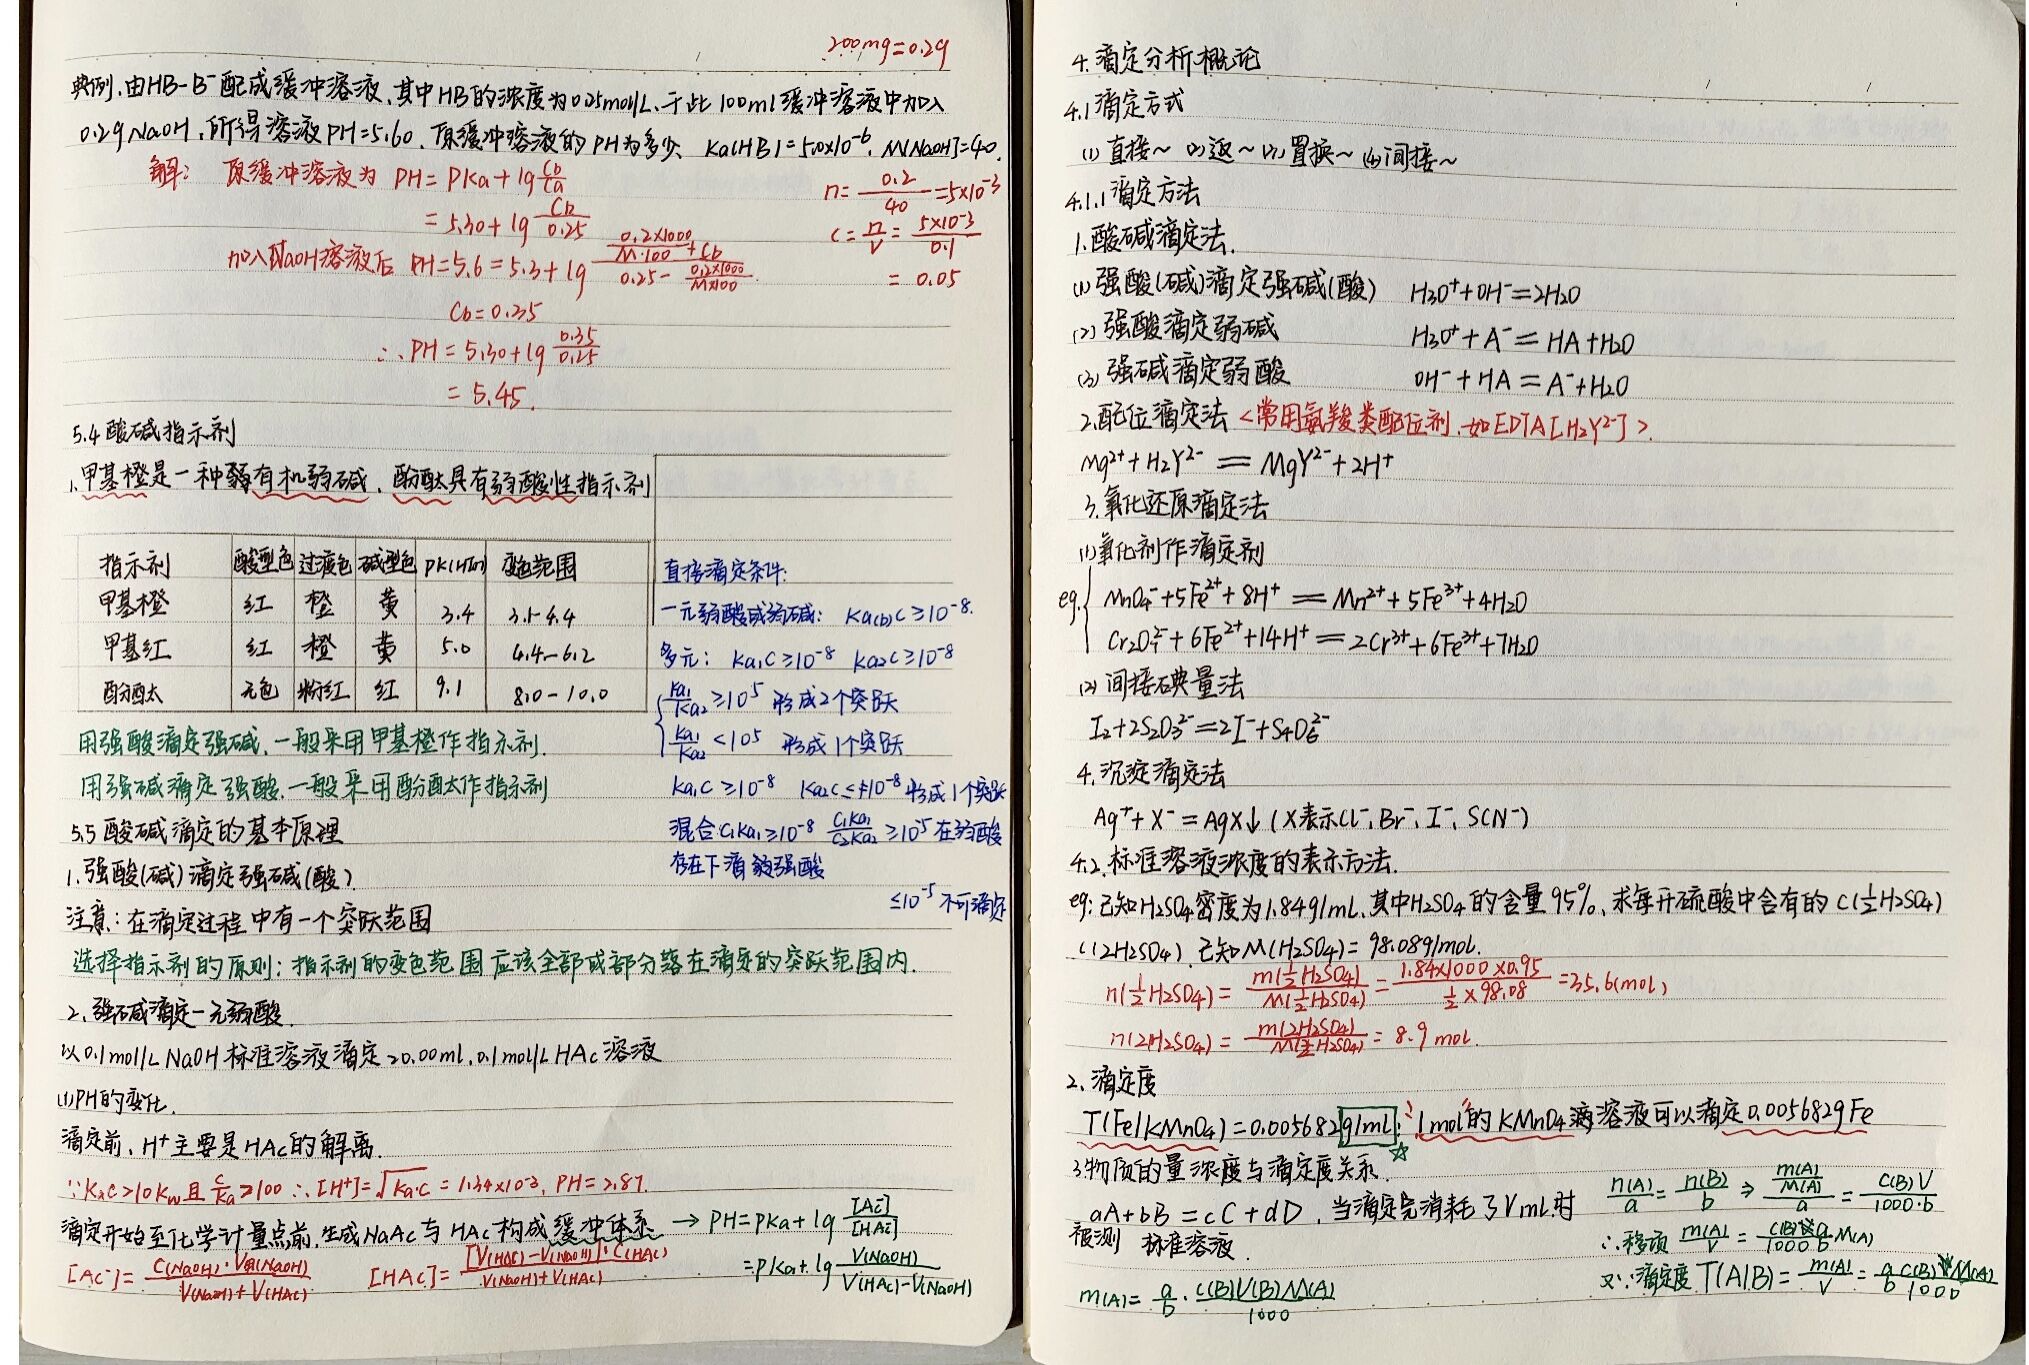 200mg=0.2g
典例.由HB-B⁻配成缓冲溶液,其中HB的浓度为0.25mol/L.于此100ml缓冲溶液中加入
0.2g NaOH,所得溶液PH=5.60.原缓冲溶液的PH为多少. Ka(HB)=5.0×10⁻⁶. M[NaOH]=40.
解: 原缓冲溶液为 PH=PKa+lg Cb/Ca
n=0.2/40=5×10⁻³
=5.30+lg Cb/0.25
c=n/V=5×10⁻³/0.1
=0.05
加入NaOH溶液后 PH=5.6=5.3+lg (0.2×1000/M·100+Cb)/(0.25-0.2×1000/M×100)
Cb=0.35
∴PH=5.30+lg 0.35/0.25
=5.45.
5.4 酸碱指示剂
1.甲基橙是一种有机弱碱.酚酞具有弱酸性指示剂
指示剂 酸型色 过渡色 碱型色 PK(HIn) 变色范围
甲基橙 红 橙 黄 3.4 3.1-4.4
甲基红 红 橙 黄 5.0 4.4-6.2
酚酞 无色 粉红 红 9.1 8.0-10.0
直接滴定条件:
一元弱酸或弱碱: Ka(b)C≥10⁻⁸.
多元: Ka₁C≥10⁻⁸ Ka₂C≥10⁻⁸
Ka₁/Ka₂≥10⁵ 形成2个突跃
Ka₁/Ka₂<10⁵ 形成1个突跃
Ka₁C≥10⁻⁸ Ka₂C≤10⁻⁸ 形成1个突跃
混合:C₁Ka₁≥10⁻⁸ C₁Ka₁/C₂Ka₂≥10⁵ 在弱酸
存在下滴强酸
≤10⁻⁵ 不可滴定
用强酸滴定强碱.一般采用甲基橙作指示剂.
用强碱滴定强酸.一般采用酚酞作指示剂
5.5 酸碱滴定的基本原理
1.强酸(碱)滴定强碱(酸).
注意:在滴定过程中有一个突跃范围
选择指示剂的原则:指示剂的变色范围应该全部或部分落在滴定的突跃范围内.
2.强碱滴定一元弱酸.
以0.1mol/L NaOH标准溶液滴定20.00ml.0.1mol/L HAc溶液
(1)PH的变化.
滴定前,H⁺主要是HAc的解离.
∵KaC>10Kw且c/Ka>100 ∴[H⁺]=√Ka·C=1.34×10⁻³, PH=2.87.
滴定开始至化学计量点前,生成NaAc与HAc构成缓冲体系→PH=PKa+lg [Ac⁻]/[HAc]
[Ac⁻]=C(NaOH)·V(NaOH)/V(NaOH)+V(HAc) [HAc]=[V(HAc)-V(NaOH)]·C(HAc)/V(NaOH)+V(HAc) =PKa+lg V(NaOH)/V(HAc)-V(NaOH)
4.滴定分析概论
4.1滴定方式
(1)直接~ (2)返~ (3)置换~ (4)间接~
4.1.1滴定方法
1.酸碱滴定法.
(1)强酸(碱)滴定强碱(酸) H₃O⁺+OH⁻=2H₂O
(2)强酸滴定弱碱 H₃O⁺+A⁻=HA+H₂O
(3)强碱滴定弱酸 OH⁻+HA=A⁻+H₂O
2.配位滴定法<常用氨羧类配位剂.如EDTA[H₂Y²⁻]>.
Mg²⁺+H₂Y²⁻=MgY²⁻+2H⁺
3.氧化还原滴定法
(1)氧化剂作滴定剂
eg. MnO₄⁻+5Fe²⁺+8H⁺=Mn²⁺+5Fe³⁺+4H₂O
Cr₂O₇²⁻+6Fe²⁺+14H⁺=2Cr³⁺+6Fe³⁺+7H₂O
(2)间接碘量法
I₂+2S₂O₃²⁻=2I⁻+S₄O₆²⁻
4.沉淀滴定法
Ag⁺+X⁻=AgX↓(X表示Cl⁻,Br⁻,I⁻,SCN⁻)
4.2.标准溶液浓度的表示方法.
eg:已知H₂SO₄密度为1.84g/mL.其中H₂SO₄的含量95%.求每升硫酸中含有的C(½H₂SO₄)
C(2H₂SO₄).已知M(H₂SO₄)=98.08g/mol.
n(½H₂SO₄)=m(½H₂SO₄)/M(½H₂SO₄)=1.84×1000×0.95/½×98.08=35.6(mol)
n(2H₂SO₄)=m(2H₂SO₄)/M(½H₂SO₄)=8.9mol.
2.滴定度
T(Fe/KMnO₄)=0.005682g/mL:"1mol"的KMnO₄溶液可以滴定0.005682gFe
3.物质的量浓度与滴定度关系.
n(A)/a=n(B)/b⇒m(A)/M(A)/a=C(B)V/1000·b
aA+bB=cC+dD.当滴定完消耗了VmL时
被测 标准溶液.
∴移项 m(A)/V=C(B)a/1000b M(A)
m(A)=a/b·C(B)V(B)M(A)/1000
又∵滴定度T(A/B)=m(A)/V=a/b C(B)M(A)/1000